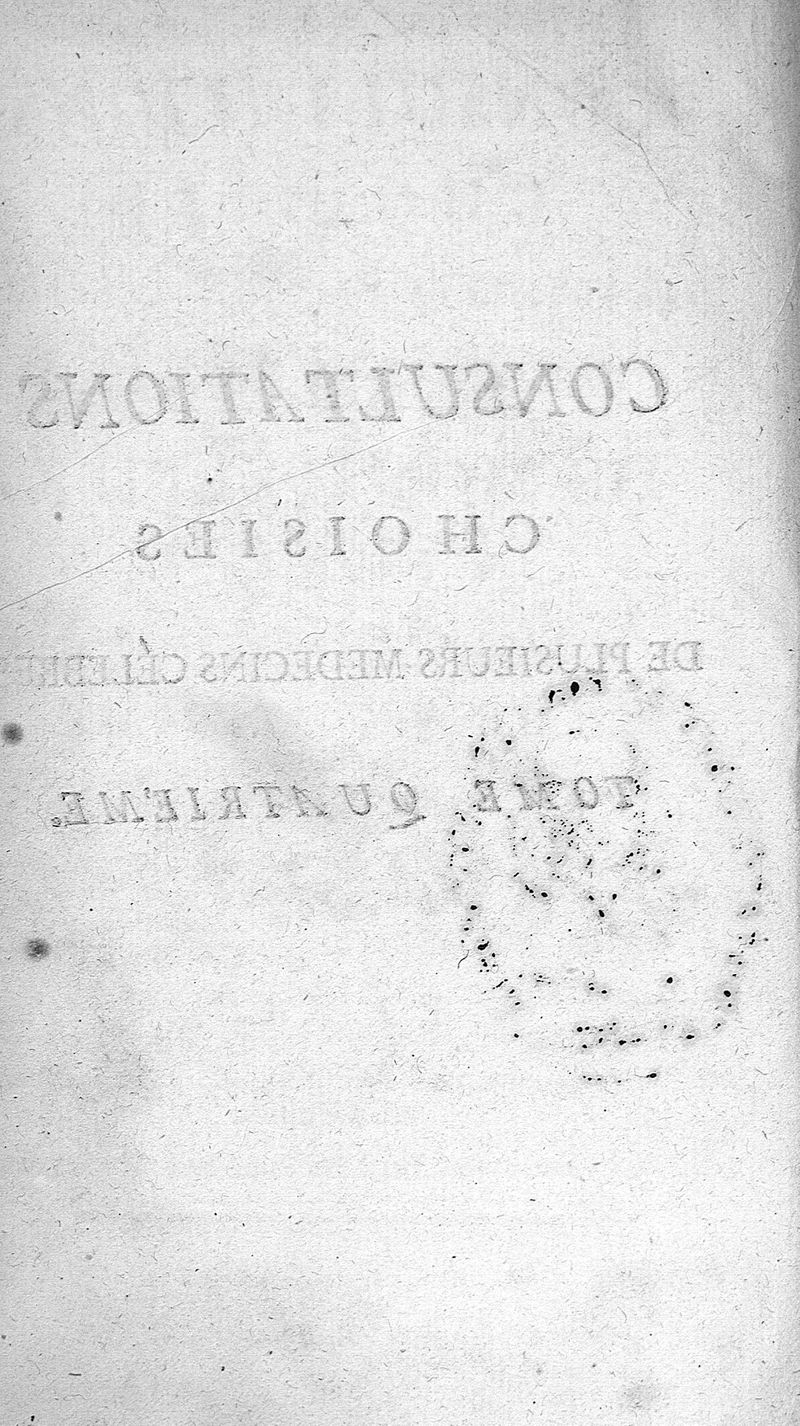 CONSULTATIONS
CHOISIES
DE PLUSIEURS MEDECINS CÉLEBRES
TOME QUATRIEME.